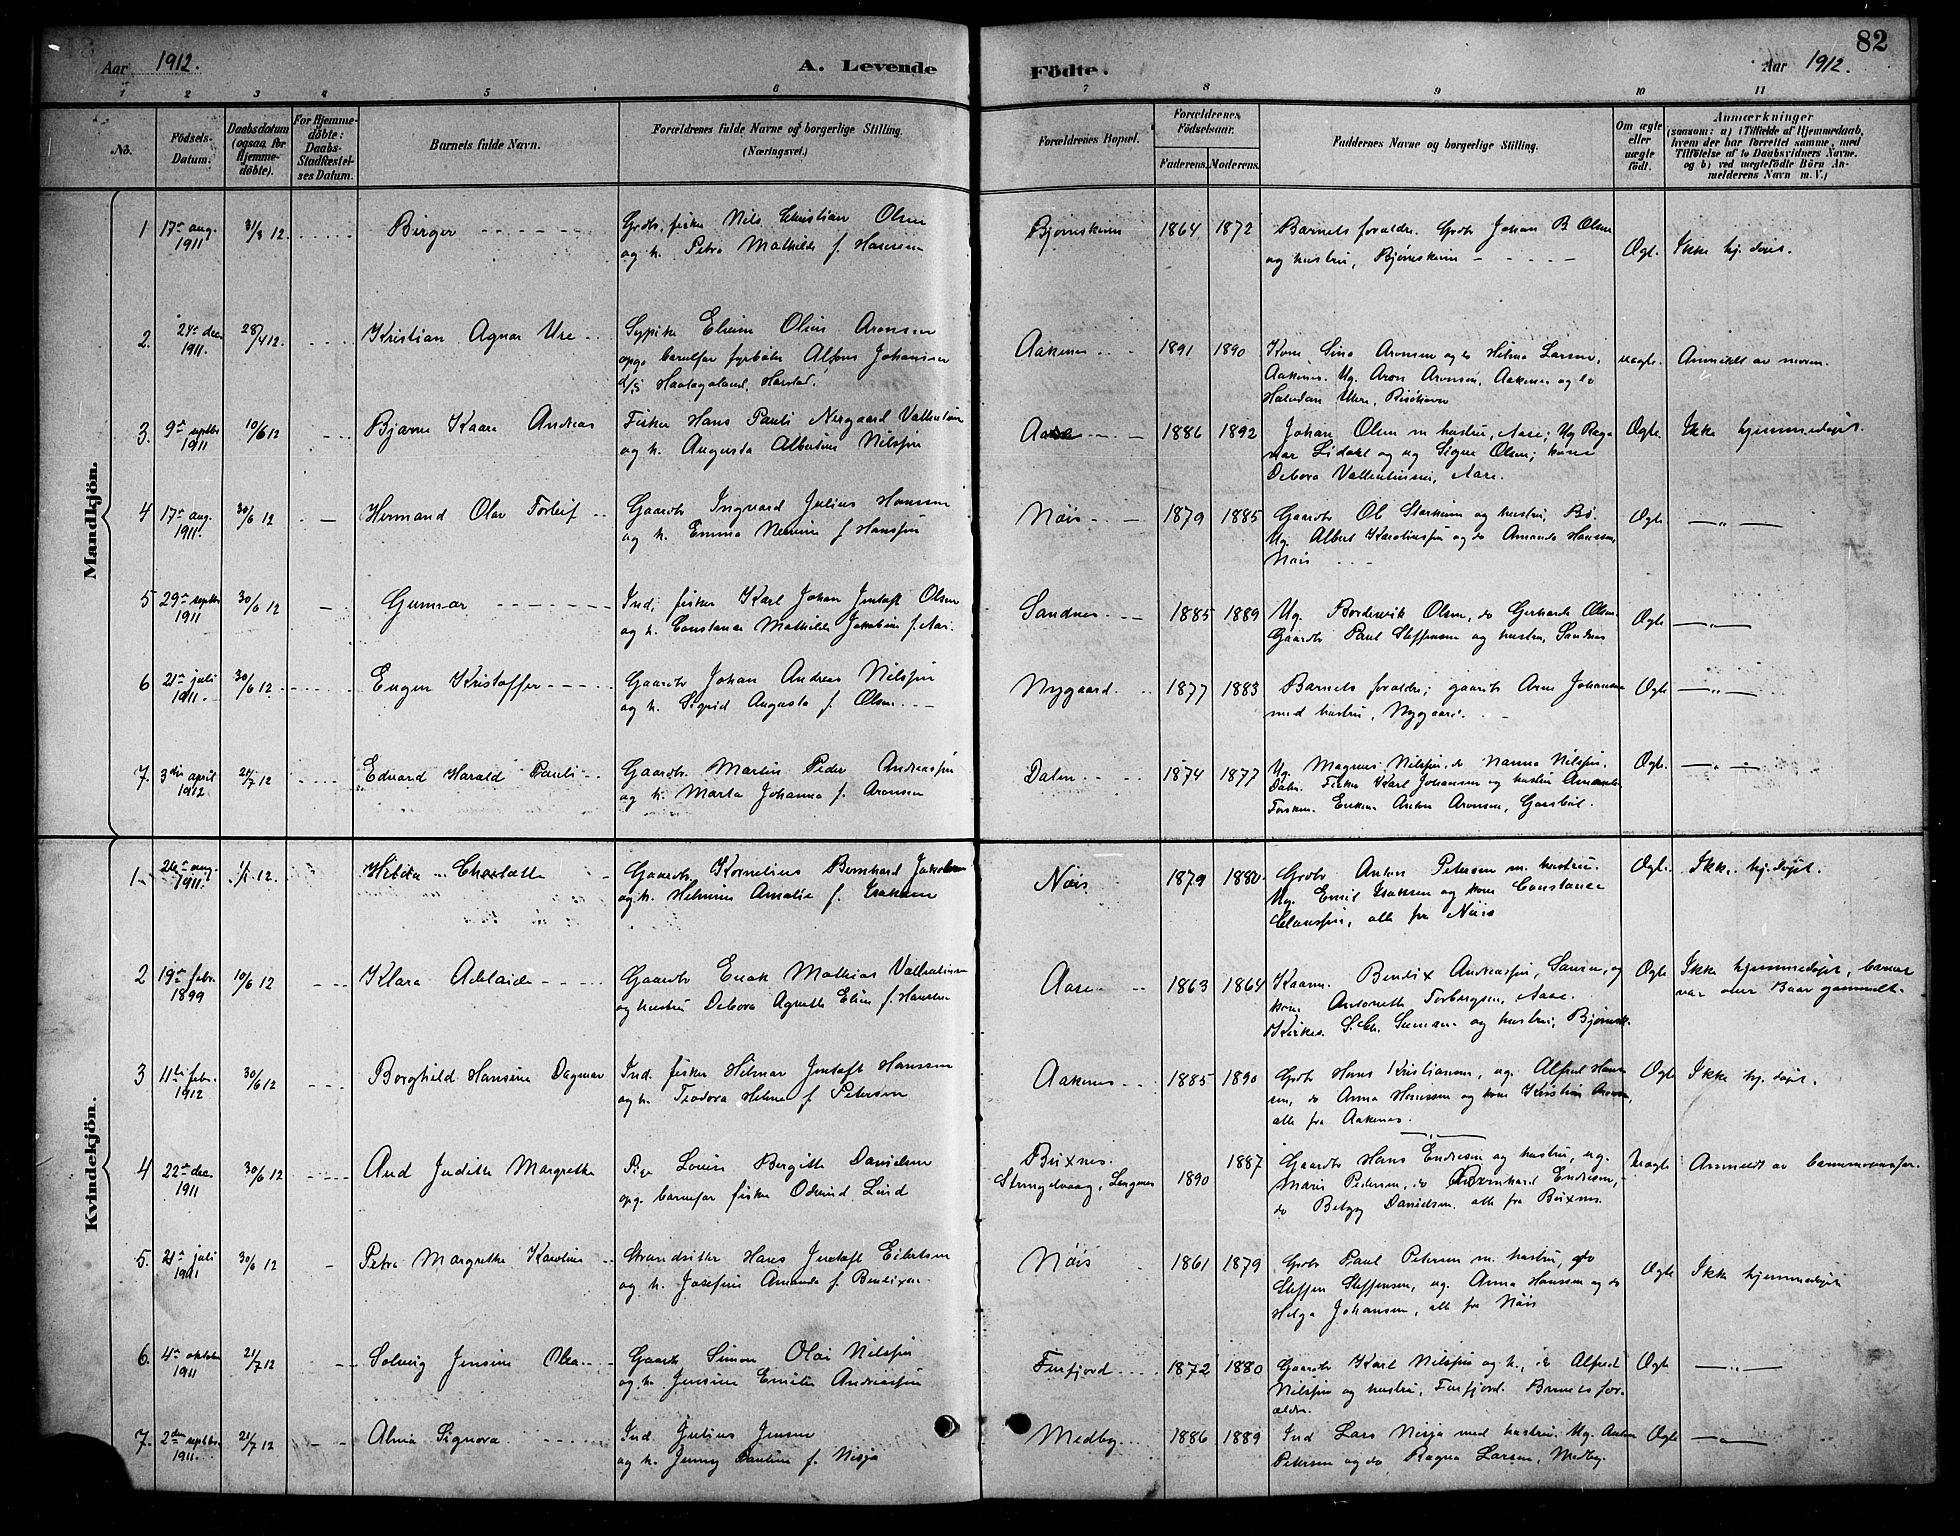 82
Aar 1912.
A. Levende Födte.
Aar 1912.
1 2 3 4 5 6 7 8 9 10 11
No.
Födsels-Datum.
Daabsdatum (ogsaa for Hjemme-döbte).
For Hjemme-döbte: Daabs-Stadfæstel-ses Datum.
Barnets fulde Navn.
Forældrenes fulde Navne og borgerlige Stilling.
(Næringsvei.)
Forældrenes Bopæl.
Forældrenes Födselsaar.
Faderens. Moderens.
Faddernes Navne og borgerlige Stilling.
Om ægte eller uægte födt.
Anmærkninger
(saasom: a) i Tilfælde af Hjemmedaab, hvem der har forrettet samme, med Tilföielse af to Daabsvidners Navne, og b) ved uægtefödte Börn An-melderens Navn m. V.)
Mandkjön.
1 17de aug. 1911 31/3 12. Birger
Grdbr, fisker Nils Christian Olsen
og h. Petra Mathilde f. Hansen
Bjørnskinn 1864 1872
Barnets forældre. Grdb Johan B Olsen
og hustru, Bjørnskinn
Ægt. Ikke hj. døpt.
2. 24de dec 1911. 28/4 12. Kristian Agnar Ure
Sypike Eline Oline Aronsen
opg. barnefar fyrbøter Alfons Johansen
d/s Haalogaland, Harstad.
Aaknes 1891 1890
Kone Sina Aronsen og do Helma Larsen,
Aaknes. Ug. Aron Aronsen, Aaknes og do
Halvdan Ure, Risöhavn
uægte. Anmeldt av moren.
3. 9de septbr 1911 10/6 12 Bjarne Kaare Andreas
Fisker Hans Pauli Nergaard Vallentin
og h. Augusta Albertine Nilssen
Aase 1886 1892
Johan Olsen m hustru, Aase; Ug Rag
nar Lidahl og ug Signe Olsen; kone
Debora Vallentinsen, Aase.
Ægte. Ikke hjemmedøpt.
4 17de aug. 1911. 30/6 12 Hermand Olav Torleif
Gaardb Ingvard Julius Hansen
og h. Emma Nennie f. Hanssen
Nöis 1879 1885
Gaardb Ol Starheim og hustru, Bö.
Ug. Albert Karolinssen og do Amanda Hanssen,
Nöis
Ægte — „ —
5 29de septbr 1911 30/6 12 Gunnar
Ind, fisker Karl Johan Jentoft Olsen
og h. Constance Mathilde Jakobine f. Aas.
Sandnes 1885 1889
Ug. Bordevik Olsen, do Gerharda Olsen.
Gaardb Paul Steffensen og hustru, Sandnes
Ægte — „ —
6 21de juli 1911. 30/6 12. Eugen Kristoffer
Gaardb Johan Andreas Nilssen
og h. Sigrid Augusta f. Olsen
Nygaard 1877 1883
Barnets forældre; gaardb Arne Johansen
med hustru, Nygaard.
Ægte — „ —
7. 3die april 1912 21/7 12 Edvard Harald Pauli
Gaardb Martin Peder Andreassen
og h. Marta Johanna f. Aronsen
Dalen 1874 1877
Ug. Magnus Nilssen, do Nanna Nilssen,
Dalen. Fisker Karl Johansen og hustru Amanda,
Forsken. Enkem Anton Aronsen, Gaasbøl.
Ægte. — „ —
Kvindekjön.
1. 26de aug. 1911. 1/1 12. Hilda Charlotte
Gaardb Kornelius Bernhard Jakobsen
og h. Helmine Amalie f. Isaksen
Nöis 1879 1880.
Grdb Anton Petersen m. hustru.
Ug. Emil Isaksen og kone Constance
Claussen, alle fra Nöis
Ægt. Ikke hj. døpt.
2 19de febr. 1899 10/6 12 Klara Adelaide
Gaardb Enok Mathias Vallentinsen
og hustru Debora Agnethe Eline f. Hansen
Aase 1863 1864
Kaarm. Bendix Andreassen, Saura, og
kone Antonette Torbergsen, Aase.
Kirkes. S. Chr. Simonsen og hustru, Bjørnsk.
Ægte Ikke hjemmedøpt, barnet
var over 13 aar gammelt.
3 11te febr. 1912 30/6 12 Borghild Hansine Dagmar
Ind. fisker Hilmar Jentoft Hanssen
og h. Teodora Helene f. Petersen
Aaknes 1885 1890
Grdb Hans Kristiansen, ug. Alfred Hans
sen, do Anna Hanssen og kone Kristine Aronsen,
alle fra Aaknes.
Ægte Ikke hj. døpt.
4 22de dec 1911 30/6 12 Aud Judithe Margrethe
Pige Lovise Bergitte Danielsen
opg. barnefar fisker Odevind Lind
Buxnes.
Strengelvaag, Langnes 1890 1887
Gaardb Hans Endresen og hustru, ug.
Marie Pedersen, do Bernhard Endresen,
do Betzy Danielsen alle fra Buxnes.
Uægte Anmeldt av barnemoren.
5. 21de juli 1911 30/6 12 Petra Margrethe Karoline
Strandsitter Hans Jentoft Eilertsen
og h. Josefine Amanda f. Bendixen.
Nöis 1861 1879
Grdb Paul Petersen m. hustru, do
Steffen Steffensen, ug. Anna Hanssen og do
Helga Johansen, alle fra Nöis
Ægte Ikke hjemmedøpt
6. 4de oktober 1911 21/7 12 Solveig Jensine Olea
Gaardb Simon Olai Nilssen
og h. Jensine Emilie Andreassen
Finfjord 1872 1880
Gaardb Karl Nilssen og h., do Alfred
Nilssen og hustru, Finfjord. Barnets for-
ældre.
Ægte — „ —
7. 2den septbr. 1911. 21/7 12 Alma Signora
Ind. Julius Jensen
og h. Jenny Pauline f. Nisja
Medby 1886 1889
Ind Lars Nisja med hustru. Ug. Anton
Petersen og do Ragna Larsen, Medby.
Ægte — „ —